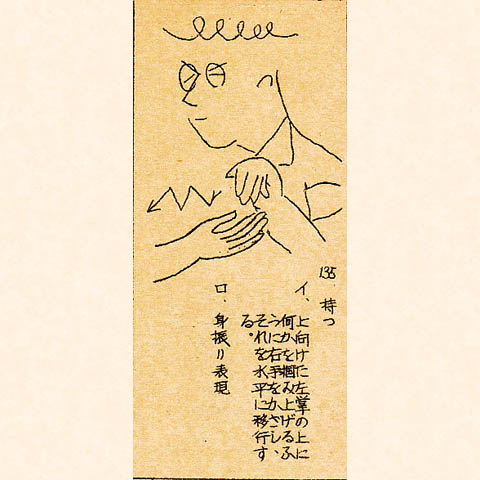 135 持つ
イ、上向けた左掌の上に
何かを掴み上げるふ
うに右手をかざし、
それを水平に移行す
る。
ロ、身振り表現